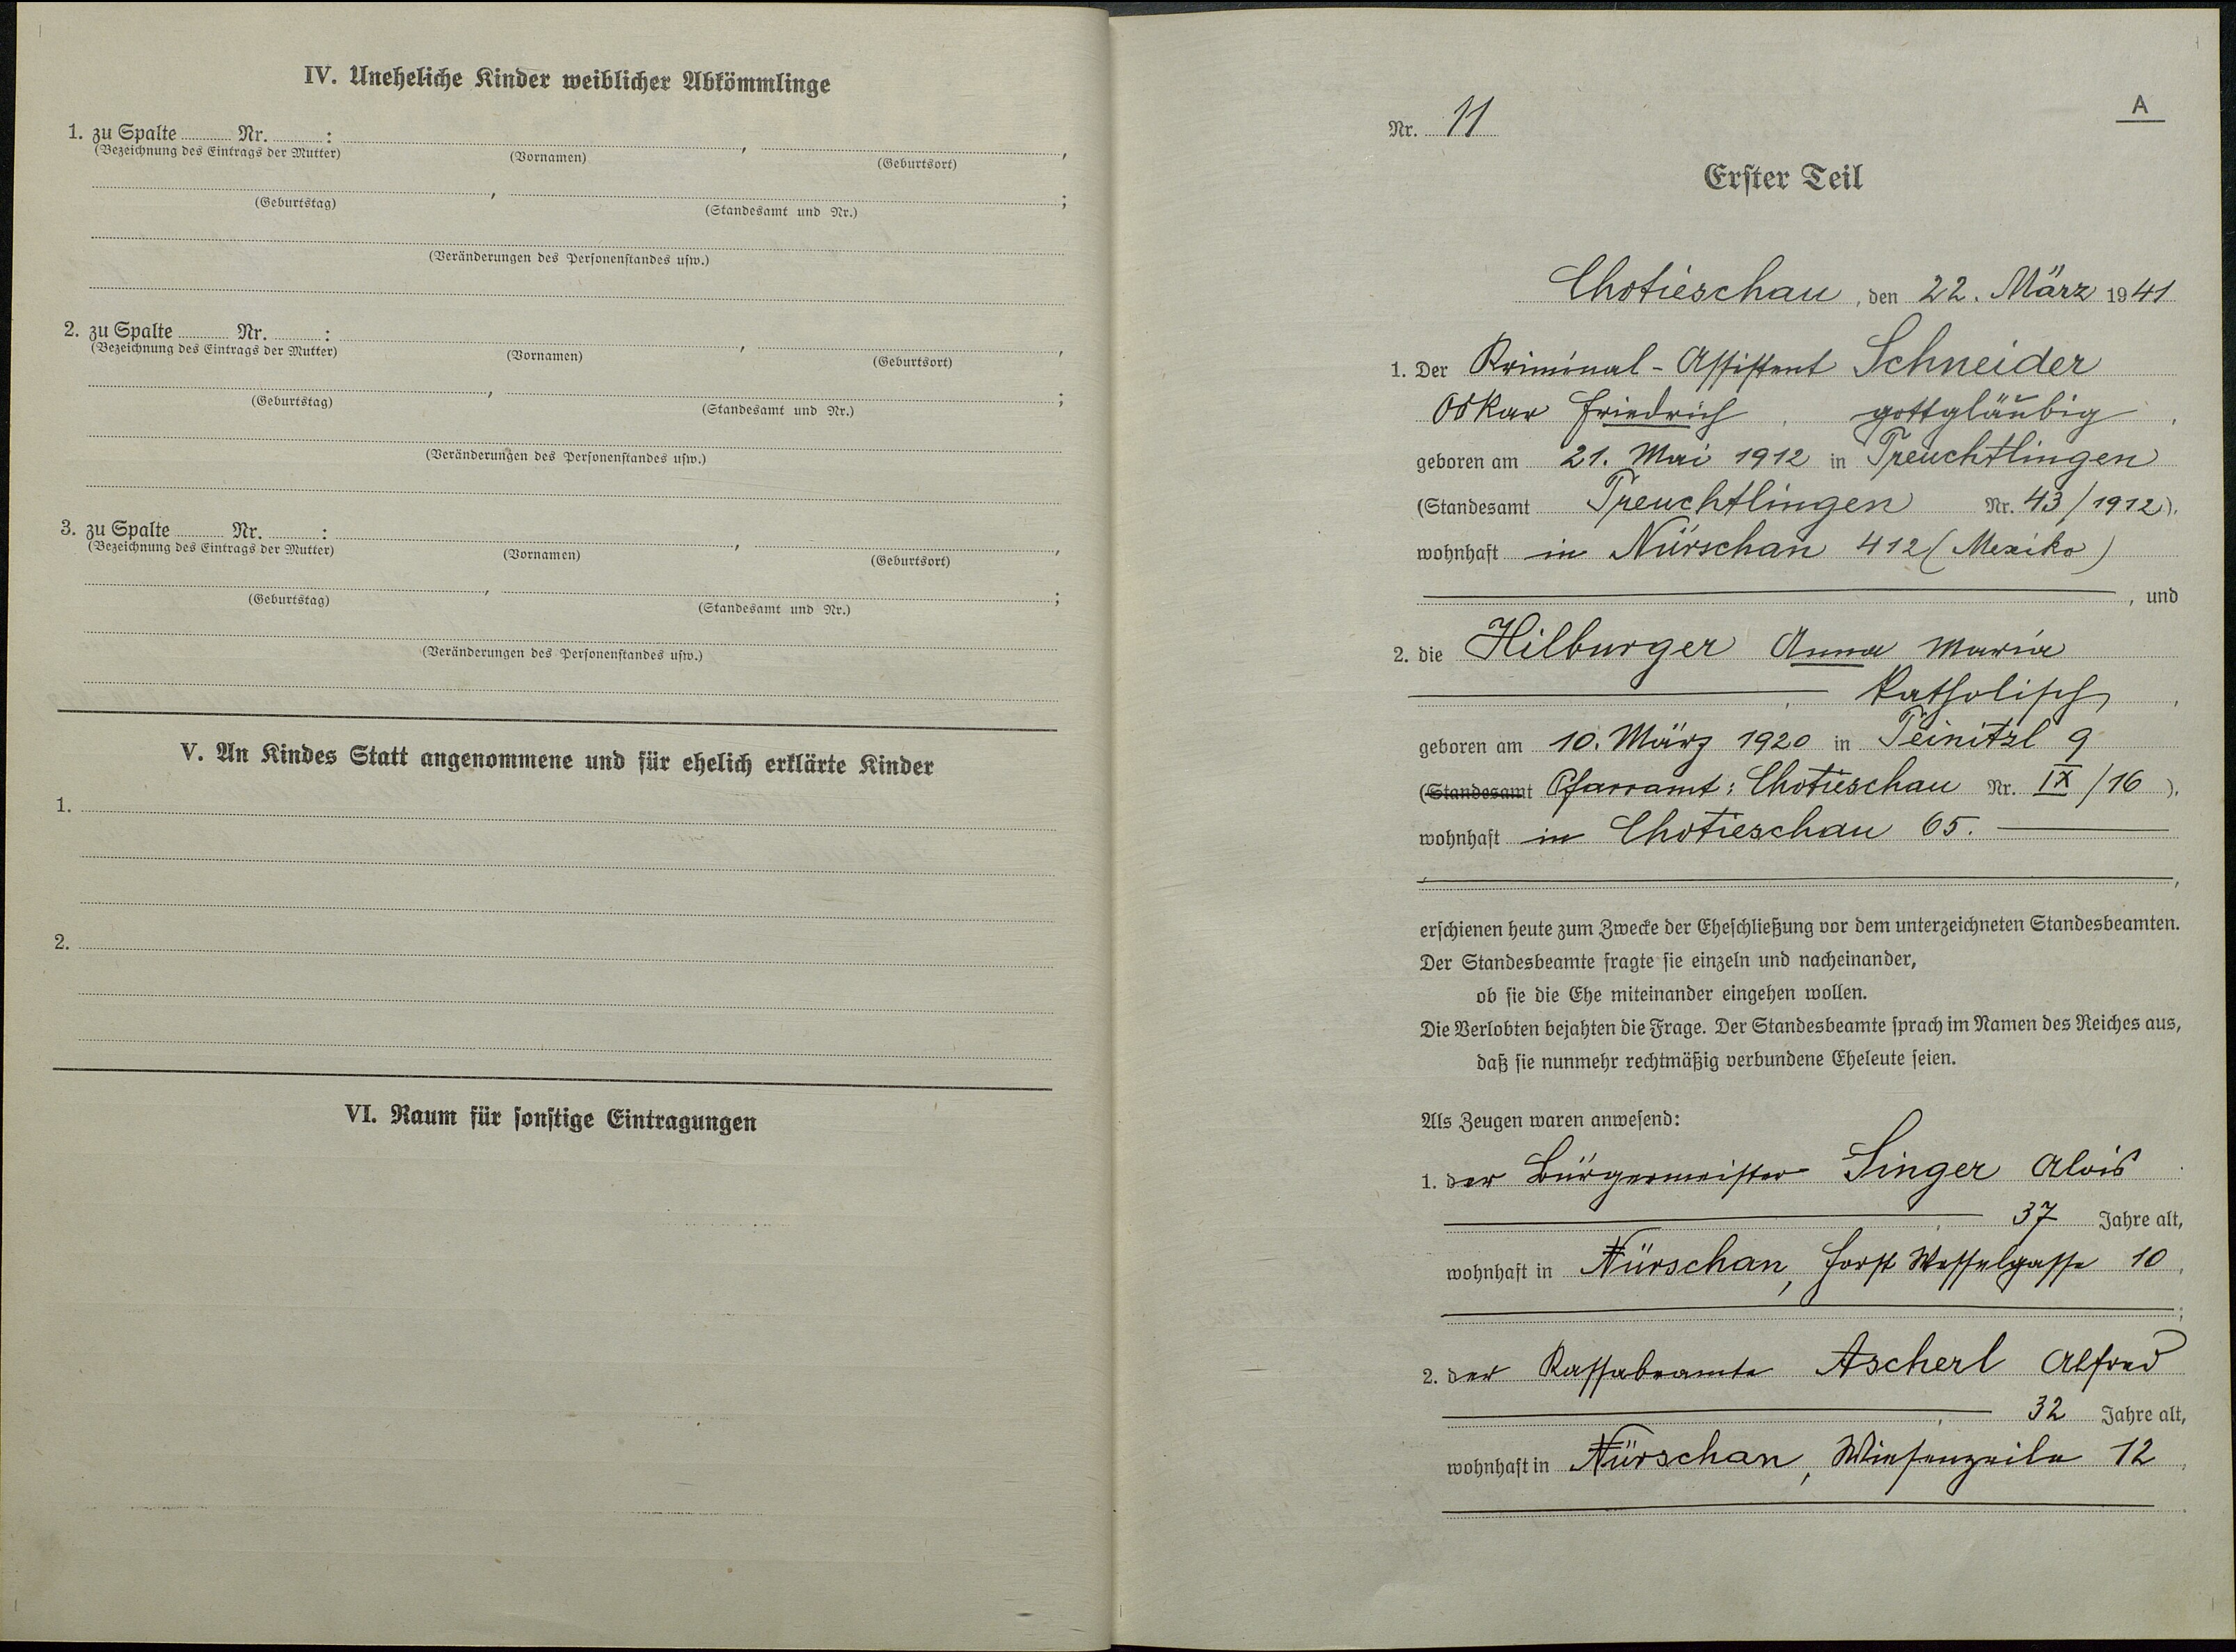 IV. Uneheliche Kinder weiblicher Abkömmlinge
1. zu Spalte ............ Nr. ............ : ............ , ............ ,
(Bezeichnung des Eintrags der Mutter) (Vornamen) (Geburtsort)
............ , ............ ;
(Geburtstag) (Standesamt und Nr.)
(Veränderungen des Personenstandes usw.)
2. zu Spalte ............ Nr. ............ : ............ , ............ ,
(Bezeichnung des Eintrags der Mutter) (Vornamen) (Geburtsort)
............ , ............ ;
(Geburtstag) (Standesamt und Nr.)
(Veränderungen des Personenstandes usw.)
3. zu Spalte ............ Nr. ............ : ............ , ............ ,
(Bezeichnung des Eintrags der Mutter) (Vornamen) (Geburtsort)
............ , ............ ;
(Geburtstag) (Standesamt und Nr.)
(Veränderungen des Personenstandes usw.)
V. An Kindes Statt angenommene und für ehelich erklärte Kinder
1.
2.
VI. Raum für sonstige Eintragungen
A
Nr. 11
Erster Teil
Chotieschau, den 22. März 1941
1. Der Kriminal-Assistent Schneider
Oskar Friedrich, gottgläubig,
geboren am 21. Mai 1912 in Treuchtlingen
(Standesamt Treuchtlingen Nr. 43/1912),
wohnhaft in Nürschan 412 (Mexiko)
, und
2. die Hilburger Anna Maria
, katholisch,
geboren am 10. März 1920 in Teinitzl 9
(Standesamt Pfarramt: Chotieschau Nr. IX/16),
wohnhaft in Chotieschau 65.
,
erschienen heute zum Zwecke der Eheschließung vor dem unterzeichneten Standesbeamten.
Der Standesbeamte fragte sie einzeln und nacheinander,
ob sie die Ehe miteinander eingehen wollen.
Die Verlobten bejahten die Frage. Der Standesbeamte sprach im Namen des Reiches aus,
daß sie nunmehr rechtmäßig verbundene Eheleute seien.
Als Zeugen waren anwesend:
1. der Bürgermeister Singer Alois
, 37 Jahre alt,
wohnhaft in Nürschan, Horst Wesselgasse 10,
;
2. der Kassabeamte Ascherl Alfred
, 32 Jahre alt,
wohnhaft in Nürschan, Wiesenzeile 12,
.